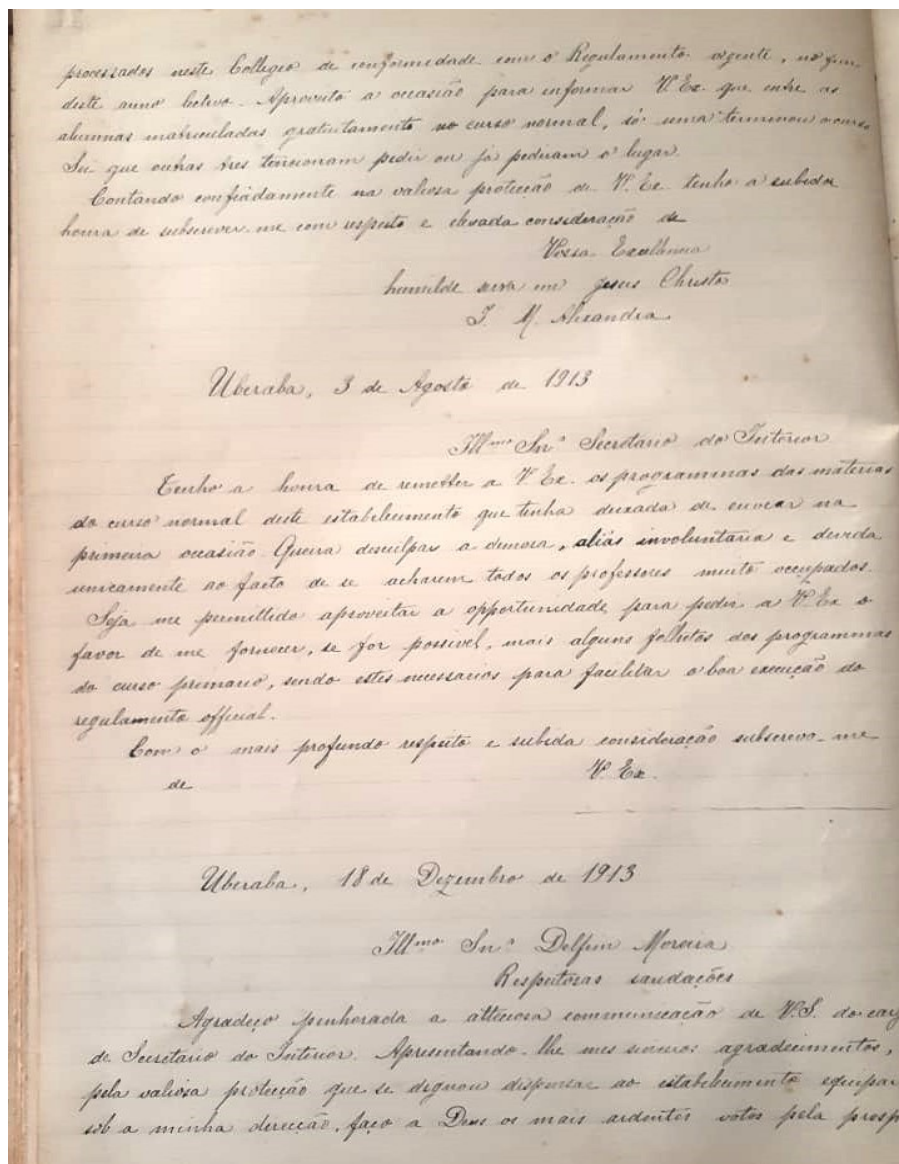 processados neste Collegio de conformidade com o Regulamento vigente, no fim
deste anno lectivo. Aproveito a occasião para informar V. Ex. que entre as
alumnas matriculadas gratuitamente no curso normal, só uma terminou o curso
Sei que outras tres tencionam pedir ou já pediram o lugar.
Contando confiadamente na valiosa protecção de V. Ex. tenho a subida
honra de subscrever-me com respeito e elevada consideração de
Vossa Excellencia
humilde serva em Jesus Christo
I. M. Alexandra
Uberaba, 3 de Agosto de 1913
Illmo Snr Secretario do Interior
Tenho a honra de remetter a V. Ex. os programmas das materias
do curso normal deste estabelecimento que tenha deixada de enviar na
primeira occasião. Queira desculpar a demora, aliás involuntaria e devida
unicamente ao facto de se acharem todos os professores muito occupados.
Seja me permittido aproveitar a opportunidade para pedir a V. Ex o
favor de me fornecer, se for possivel, mais alguns folhetos dos programmas
do curso primario, sendo estes necessarios para facilitar a boa execução do
regulamento official.
Com o mais profundo respeito e subida consideração subscrevo-me
de V. Ex.
Uberaba, 18 de Dezembro de 1913
Illmo Snr Delfim Moreira
Respeitosas saudações
Agradeço penhorada a attenciosa communicação de V.S. do carg
de Secretario do Interior. Apresentando-lhe meus sinceros agradecimentos,
pela valiosa protecção que se dignou dispensar ao estabelecimento equipar
sob a minha direcção, faço a Deus os mais ardentes votos pela prosp